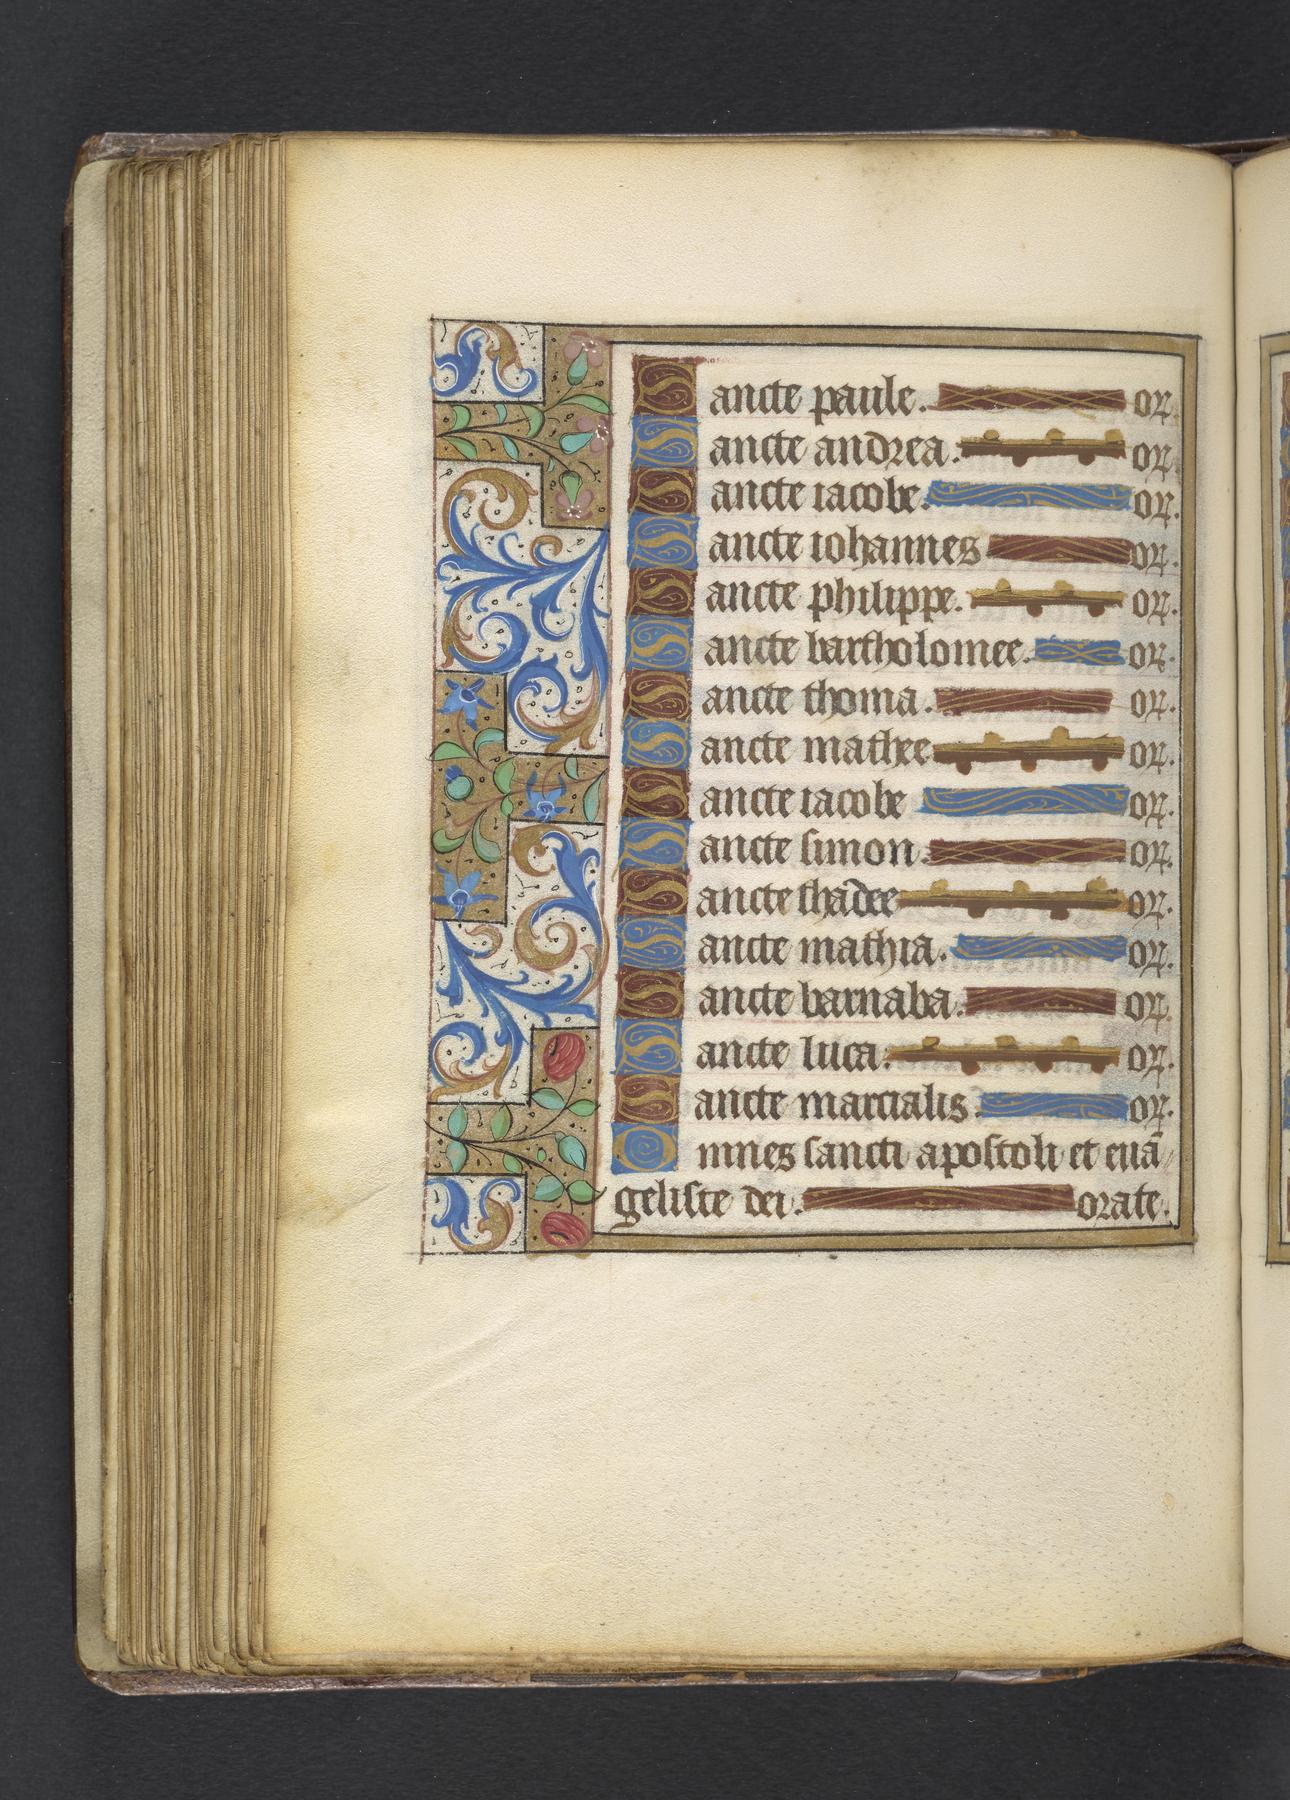 Sancte paule. oꝝ.
Sancte andrea. oꝝ.
Sancte iacobe. oꝝ.
Sancte iohannes oꝝ.
Sancte philippe. oꝝ.
Sancte bartholomee. oꝝ.
Sancte thoma. oꝝ.
Sancte mathee oꝝ.
Sancte iacobe oꝝ.
Sancte simon. oꝝ.
Sancte thadee oꝝ.
Sancte mathia. oꝝ.
Sancte barnaba. oꝝ.
Sancte luca. oꝝ.
Sancte marcialis. oꝝ.
Omnes sancti apostoli et euā
geliste dei. orate.